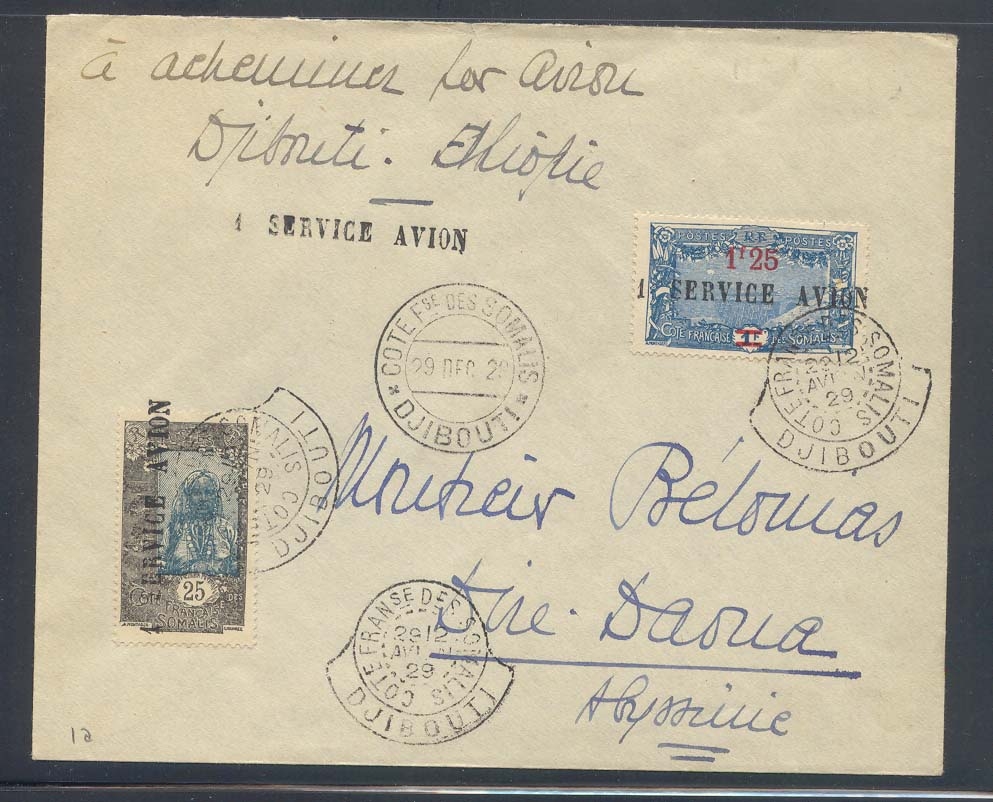 à acheminer par avion
Djibouti. Ethiopie
1 SERVICE AVION
POSTES RF POSTES
1F25
1 SERVICE AVION
1F
COTE FRANÇAISE DES SOMALIS
COTE FSE DES SOMALIS
29 DEC 29
DJIBOUTI
COTE FRANSE DES SOMALIS
29 12
AVION
29
DJIBOUTI
1 SERVICE AVION
25
COTE FRANÇAISE DES
SOMALIS
SOMALIS COT
29
DJIBOUTI
Monsieur Bélomas
Dire Daoua
Abyssinie
COTE FRANSE DES SOMALIS
29 12
AVION
29
DJIBOUTI
12